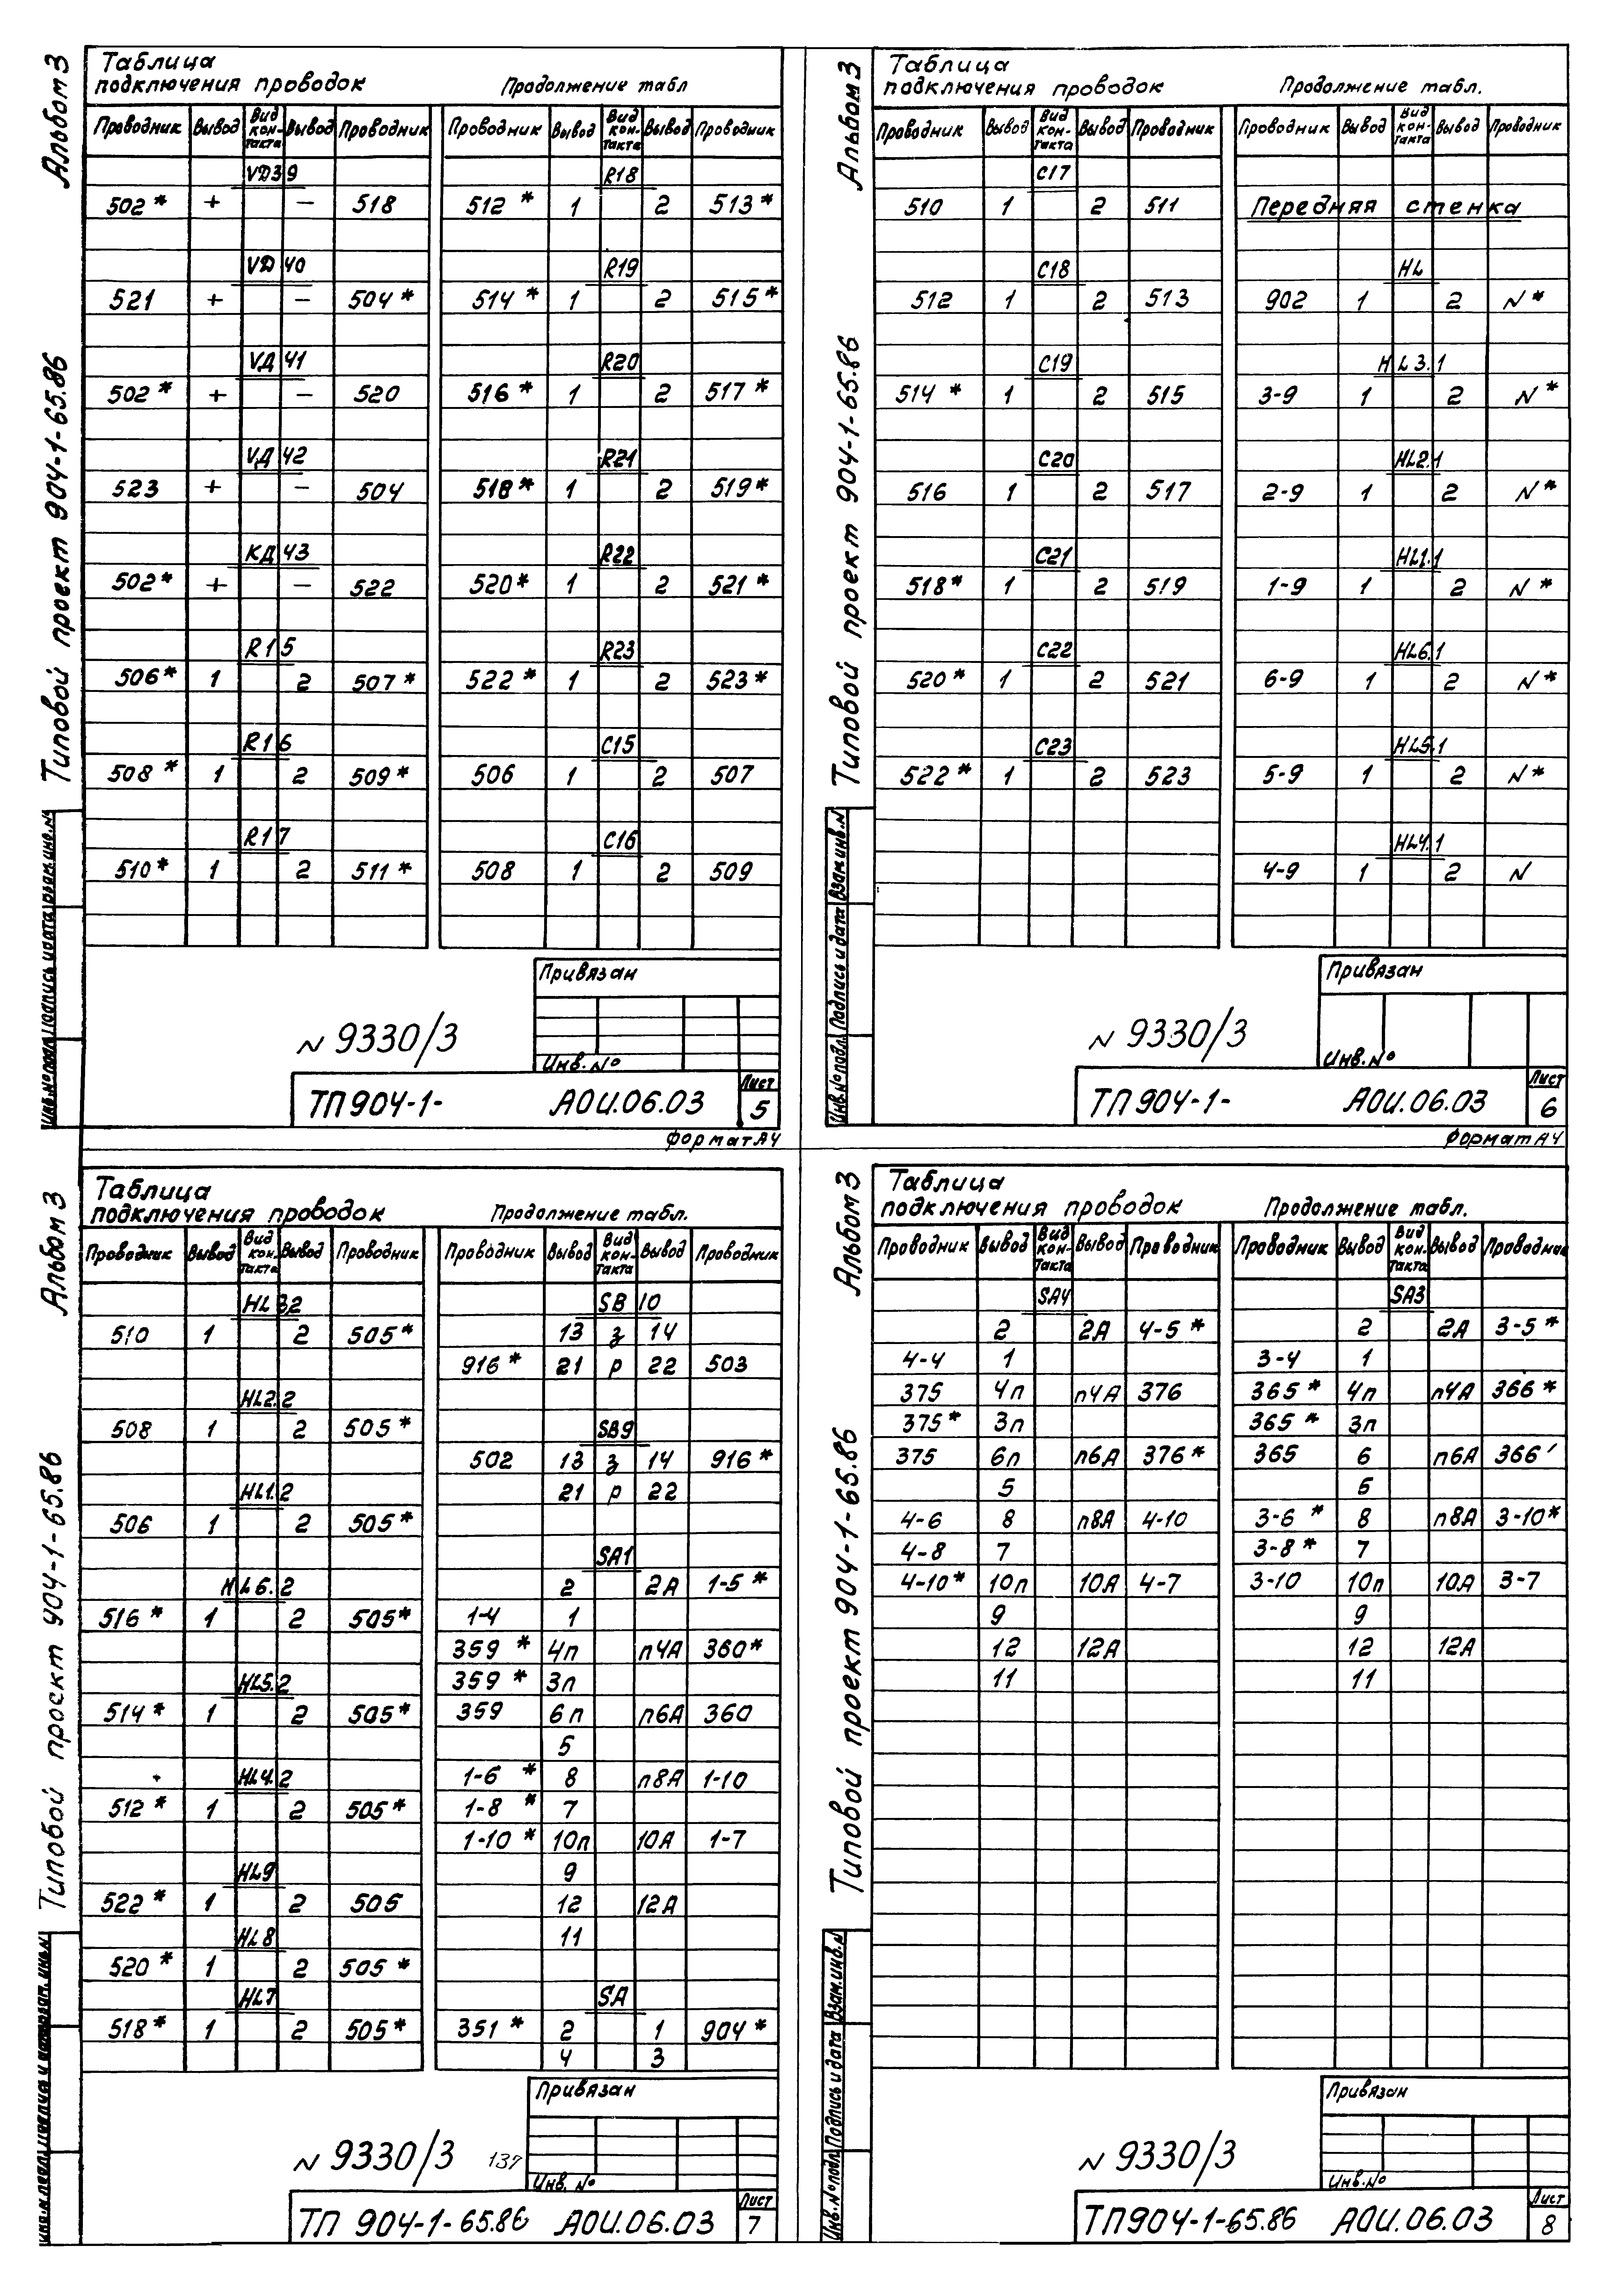 Альбом 3
Типовой проект 904-1-65.86
Таблица
подключения проводок Продолжение табл
Проводник Вывод Вид контакта Вывод Проводник Проводник Вывод Вид контакта Вывод Проводник
VD39 R18
502* + − 518 512* 1 2 513*
VD40 R19
521 + − 504* 514* 1 2 515*
VД41 R20
502* + − 520 516* 1 2 517*
VД42 R21
523 + − 504 518* 1 2 519*
КД43 R22
502* + − 522 520* 1 2 521*
R15 R23
506* 1 2 507* 522* 1 2 523*
R16 C15
508* 1 2 509* 506 1 2 507
R17 C16
510* 1 2 511* 508 1 2 509
Привязан
N 9330/3
Инв. №
ТП904-1- АОИ.06.03 Лист 5
Формат А4
Альбом 3
Типовой проект 904-1-65.86
Таблица
подключения проводок Продолжение табл.
Проводник Вывод Вид кон-такта Вывод Проводник Проводник Вывод Вид кон-такта Вывод Проводник
C17
510 1 2 511 Передняя стенка
C18 HL
512 1 2 513 902 1 2 N*
C19 HL3.1
514* 1 2 515 3-9 1 2 N*
C20 HL2.1
516 1 2 517 2-9 1 2 N*
C21 HL1.1
518* 1 2 519 1-9 1 2 N*
C22 HL6.1
520* 1 2 521 6-9 1 2 N*
C23 HL5.1
522* 1 2 523 5-9 1 2 N*
HL4.1
4-9 1 2 N
Инв.№ подл. Подпись и дата Взам.инв.N
Привязан
N 9330/3
Инв.№
ТП904-1- АОИ.06.03 Лист 6
Формат А4
Альбом 3
Типовой проект 904-1-65.86
Таблица
подключения проводок Продолжение табл.
Проводник Вывод Вид кон-такта Вывод Проводник Проводник Вывод Вид кон-такта Вывод Проводник
HL3.2 SB10
510 1 2 505* 13 з 14
916* 21 р 22 503
HL2.2
508 1 2 505* SB9
502 13 з 14 916*
HL1.2 21 р 22
506 1 2 505*
SA1
HL6.2 2 2А 1-5*
516* 1 2 505* 1-4 1
359* 4п п4А 360*
HL5.2 359* 3п
514* 1 2 505* 359 6п п6А 360
5
HL4.2 1-6* 8 п8А 1-10
512* 1 2 505* 1-8* 7
1-10* 10п 10А 1-7
HL9 9
522* 1 2 505 12 12А
HL8 11
520* 1 2 505*
HL7 SA
518* 1 2 505* 351* 2 1 904*
4 3
Привязан
N 9330/3 137
Инв. №
ТП 904-1-65.86 АОИ.06.03 Лист 7
Альбом 3
Типовой проект 904-1-65.86
Таблица
подключения проводок Продолжение табл.
Проводник Вывод Вид кон-такта Вывод Проводник Проводник Вывод Вид кон-такта Вывод Проводник
SA4 SA3
2 2А 4-5* 2 2А 3-5*
4-4 1 3-4 1
375 4п п4А 376 365* 4п п4А 366*
375* 3п 365* 3п
375 6п п6А 376* 365 6 п6А 366
5 5
4-6 8 п8А 4-10 3-6* 8 п8А 3-10*
4-8 7 3-8* 7
4-10* 10п 10А 4-7 3-10 10п 10А 3-7
9 9
12 12А 12 12А
11 11
Инв.№ подл. Подпись и дата Взам.инв.N
Привязан
N 9330/3
Инв.№
ТП904-1-65.86 АОИ.06.03 Лист 8